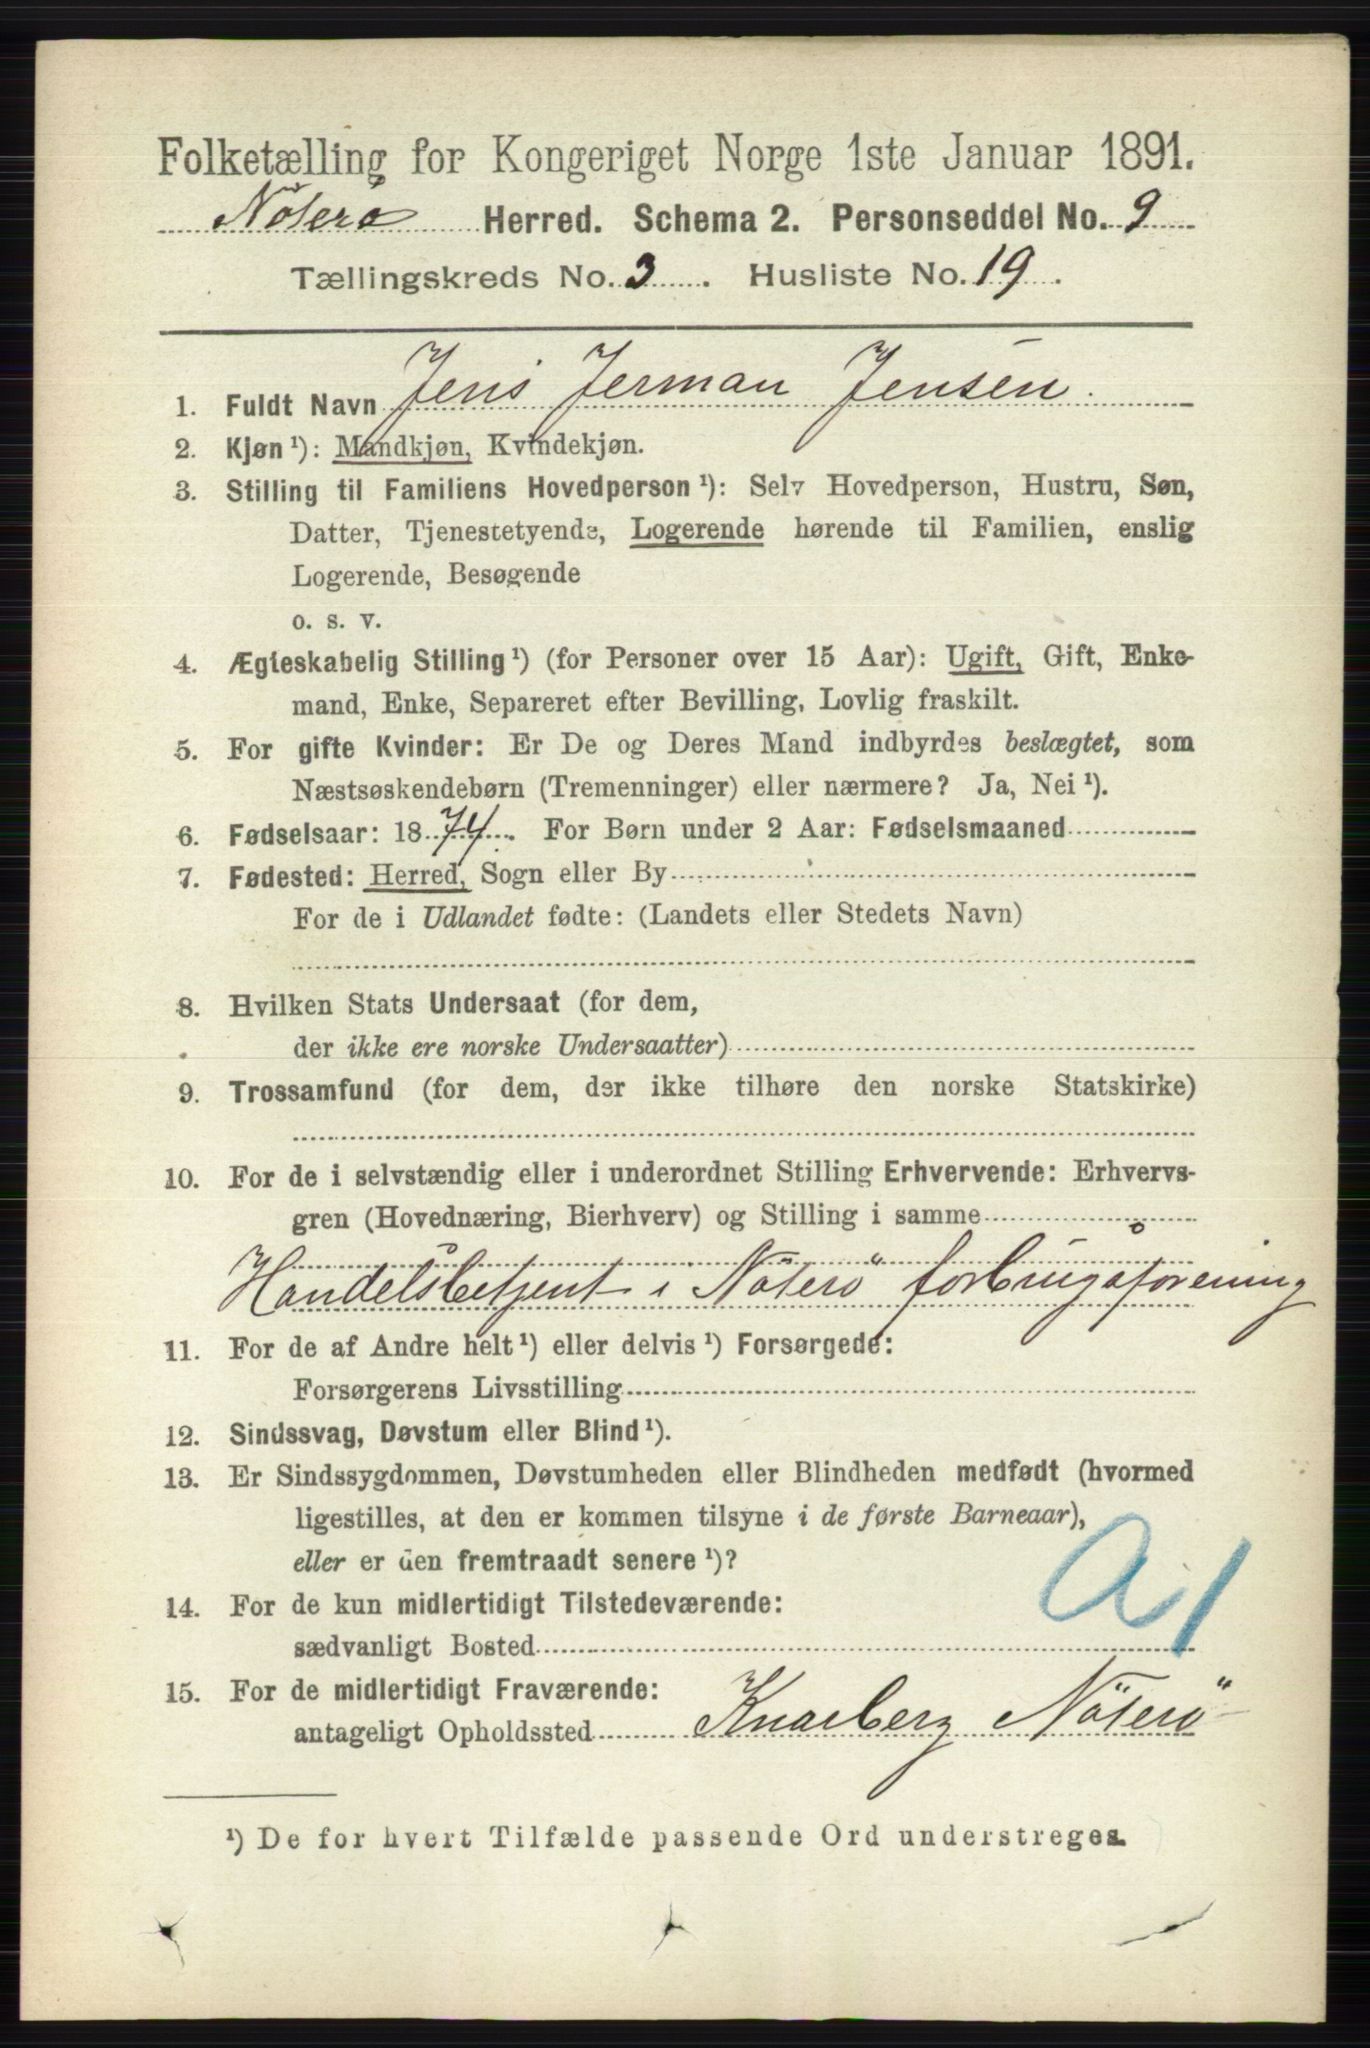 Folketælling for Kongeriget Norge 1ste Januar 1891.
Nöterö Herred. Schema 2. Personseddel No. 9
Tællingskreds No. 3. Husliste No. 19.
1. Fuldt Navn Jens Jerman Jensen.
2. Kjøn¹): Mandkjøn, Kvindekjøn.
3. Stilling til Familiens Hovedperson¹): Selv Hovedperson, Hustru, Søn,
Datter, Tjenestetyende, Logerende hørende til Familien, enslig
Logerende, Besøgende
o. s. v.
4. Ægteskabelig Stilling¹) (for Personer over 15 Aar): Ugift, Gift, Enke-
mand, Enke, Separeret efter Bevilling, Lovlig fraskilt.
5. For gifte Kvinder: Er De og Deres Mand indbyrdes beslægtet, som
Næstsøskendebørn (Tremenninger) eller nærmere? Ja, Nei¹).
6. Fødselsaar: 1874. For Børn under 2 Aar: Fødselsmaaned
7. Fødested: Herred, Sogn eller By
For de i Udlandet fødte: (Landets eller Stedets Navn)
8. Hvilken Stats Undersaat (for dem,
der ikke ere norske Undersaatter)
9. Trossamfund (for dem, der ikke tilhøre den norske Statskirke)
10. For de i selvstændig eller i underordnet Stilling Erhvervende: Erhvervs-
gren (Hovednæring, Bierhverv) og Stilling i samme
Handelsbetjent i Nöterö forbrugsforening
11. For de af Andre helt¹) eller delvis¹) Forsørgede:
Forsørgerens Livsstilling
12. Sindssvag, Døvstum eller Blind¹).
13. Er Sindssygdommen, Døvstumheden eller Blindheden medfødt (hvormed
ligestilles, at den er kommen tilsyne i de første Barneaar),
eller er den fremtraadt senere¹)?
a1
14. For de kun midlertidigt Tilstedeværende:
sædvanligt Bosted
15. For de midlertidigt Fraværende:
antageligt Opholdssted Knarberg Nöterö
¹) De for hvert Tilfælde passende Ord understreges.